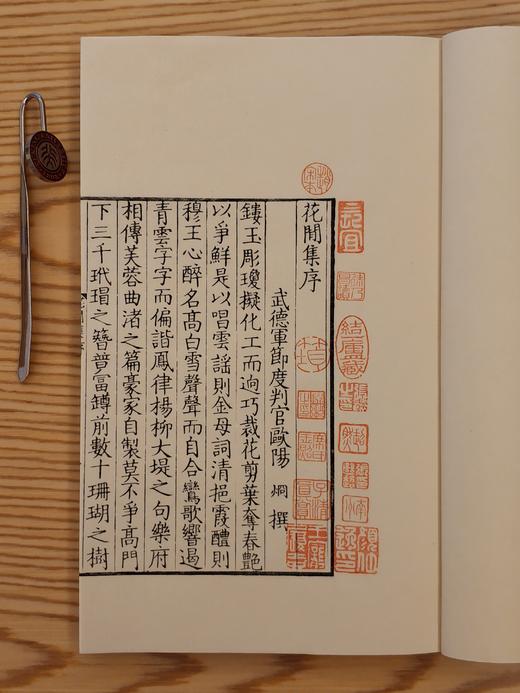 花間集序
武德軍節度判官歐陽 烱 撰
鏤玉彫瓊擬化工而逈巧裁花剪葉奪春艶
以爭鮮是以唱雲謡則金母詞清挹霞醴則
穆王心醉名髙白雪聲聲而自合鸞歌響遏
青雲字字而偏諧鳳律楊柳大堤之句樂府
相傳芙蓉曲渚之篇豪家自製莫不爭髙門
下三千玳瑁之簪普富罇前數十珊瑚之樹
結廬藏